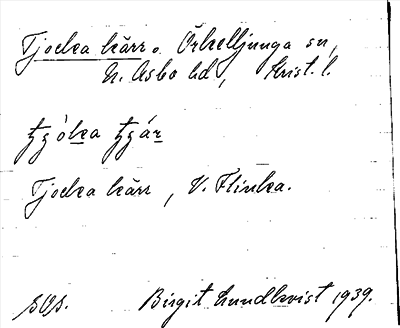 Tjocka kärr o. Örkelljunga sn,
N. Åsbo hd, Krist. l.
Tjocka kärr, V. Flinka.
sOs. Birgit Lundkvist 1939.